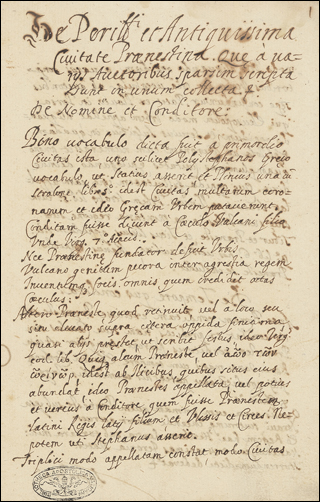 De Perill.ri et Antiquissima
Civitate Prænestina. Que à va-
rijs Auctoribus sparsim scripta
sunt in unum collecta
De Nomine et Conditore.
Bino vocabulo dicta fuit a primordio
Civitas ista uno scilicet Polystephanos Greco
vocabulo ut Statius asserit et Plinius una cum
Strabone libro idest Civitas multarum coro-
narum et ideo Grecam Urbem vocaverunt
Conditam fuisse dicunt a Cæculo Vulcani filio
Unde Virg. 7. Æneid.
Nec Prænestinæ fundator defuit Urbis
Vulcano genitum pecora inter agrestia regem
Inventumque focis, omnis quem credidit ætas
Cæculus.
Altero Præneste, quod retinuit vel a loco seu
situ elevato supra cetera oppida finitima
quasi alijs præstet ut scribit Festus,
eod. lib. Quia altum Præneste vel
idest ab Ilicibus quibus situs eius
abundat ideo Prænestes appellata, vel potius
et verius a Conditore quem fuisse Prænestem
Latini Regis filium et Ulissis et Cerces Ne-
potem ut Stephanus asserit.
Triplici modo appellatam constat modo Civitas